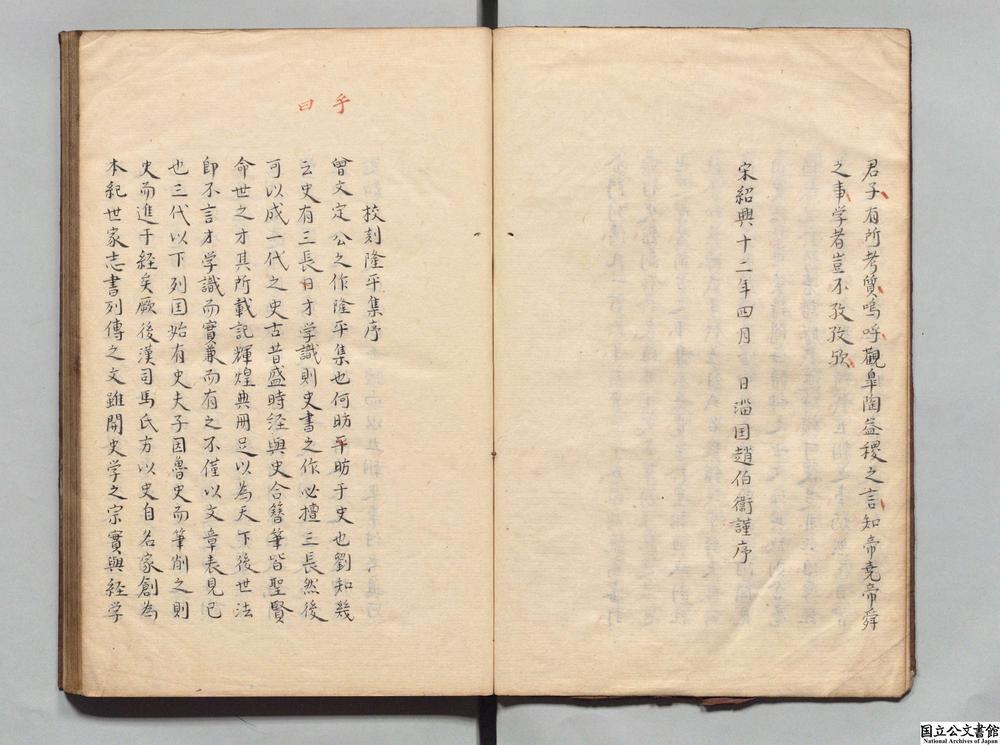 君子有所考質嗚呼觀皐陶益稷之言知帝尭帝舜
之事学者豈不孜孜欤
宋紹興十二年四月　日淄囯趙伯衞謹序
乎
曰
挍刻隆平集序
曾文定公之作隆平集也何昉平昉于史也劉知幾
云史有三長日才学識則史書之作必擅三長然後
可以成一代之史古昔盛時経與史合簪筆皆聖賢
命世之才其所載記輝煌典冊足以為天下後世法
即不言才学識而實兼而有之不僅以文章表見已
也三代以下列囯始有史夫子因魯史而筆削之則
史而進于経矣厥後漢司馬氏方以史自名家創為
本紀世家志書列傳之文雖開史学之宗實與経学
国立公文書館
National Archives of Japan